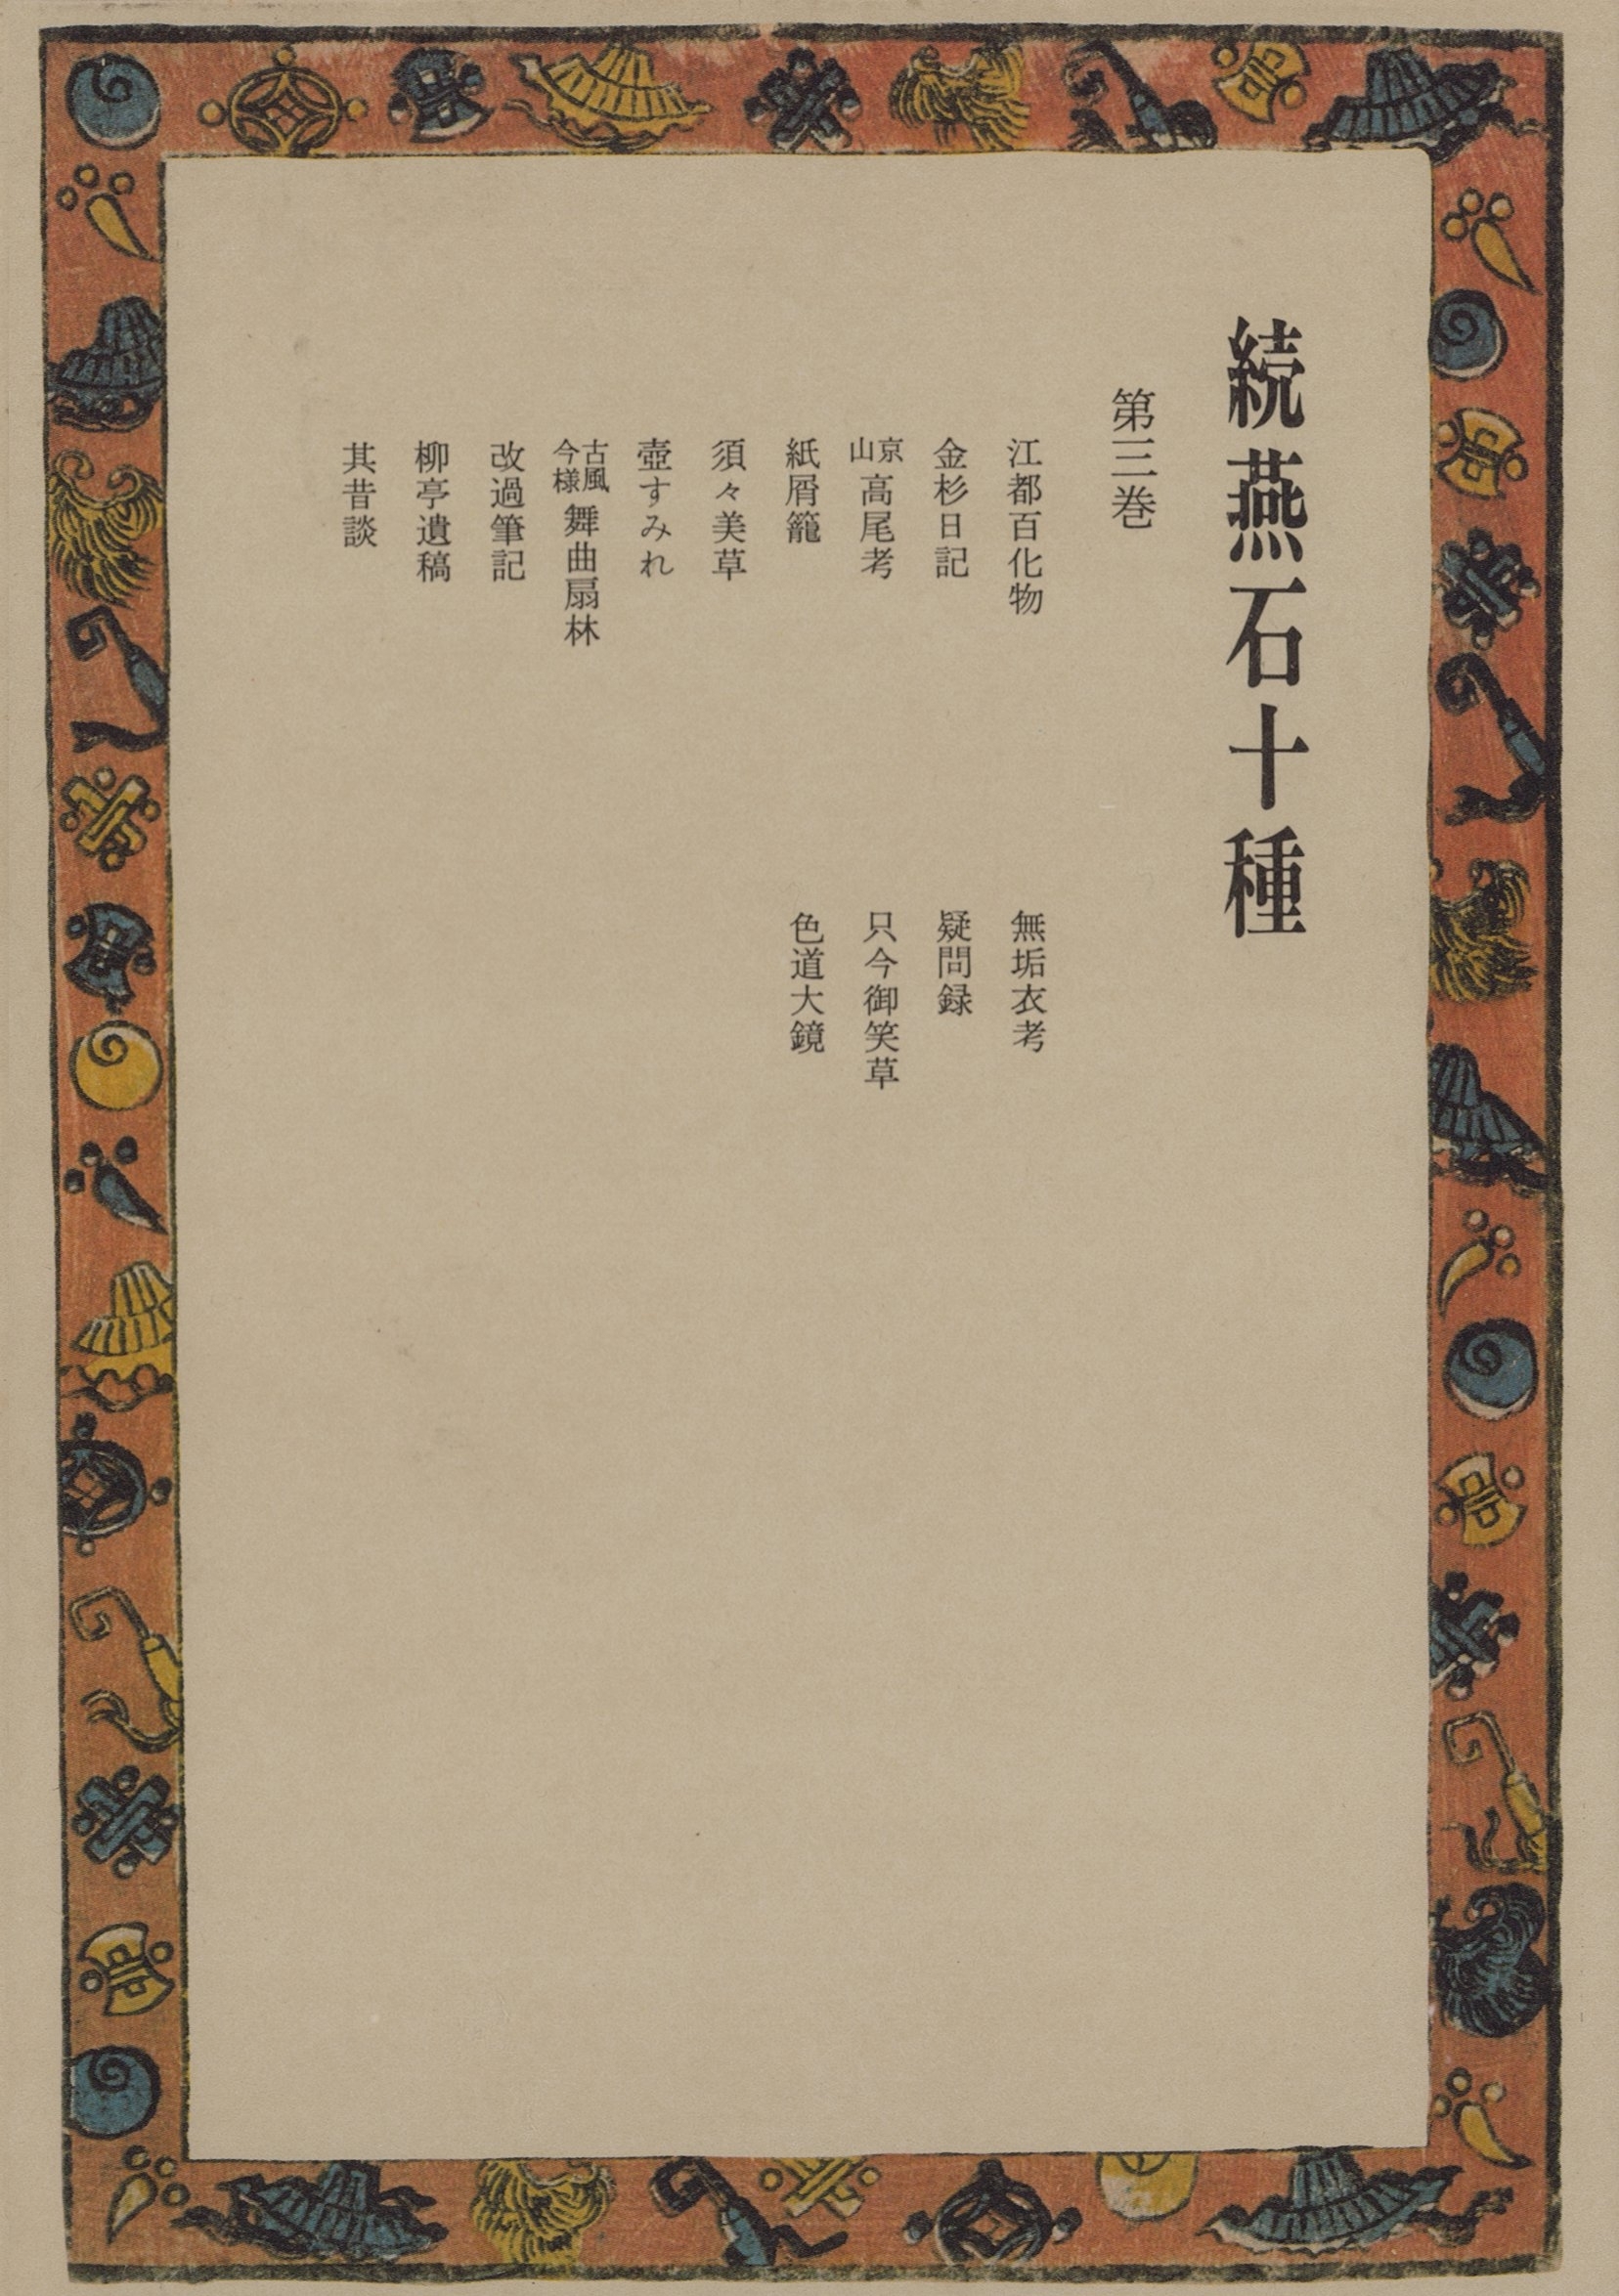 続燕石十種
第三巻
江都百化物
金杉日記
京山高尾考
紙屑籠
須々美草
壺すみれ
古風今様舞曲扇林
改過筆記
柳亭遺稿
其昔談
無垢衣考
疑問録
只今御笑草
色道大鏡